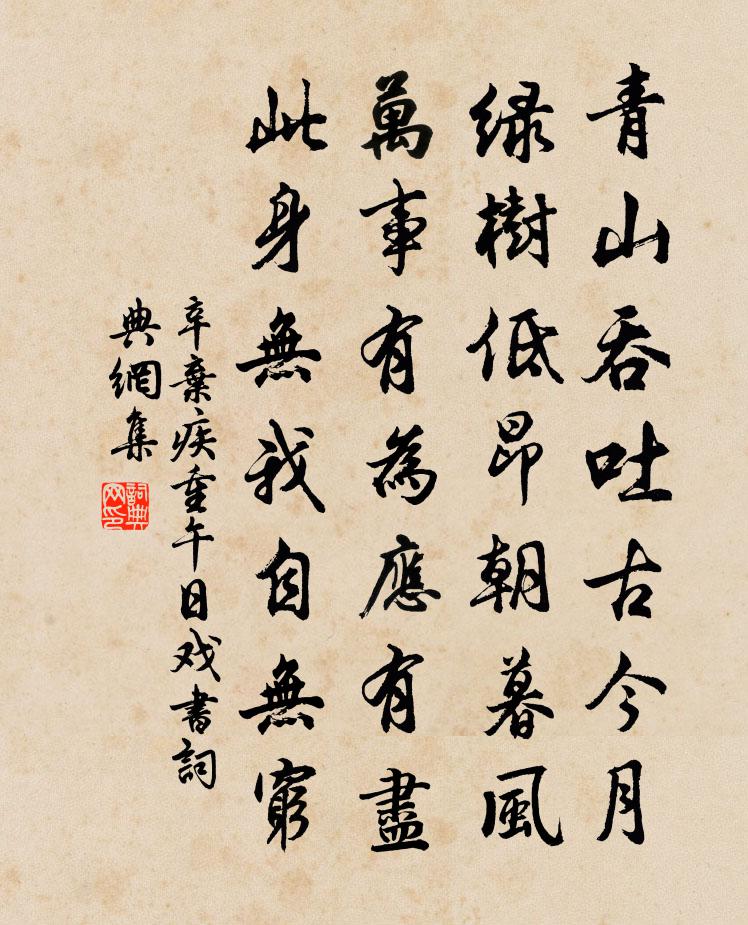 青山吞吐古今月
绿樹低昂朝暮風
萬事有為應有盡
此身無我自無窮
辛棄疾重午日戏書詞
典網集
詞典网印